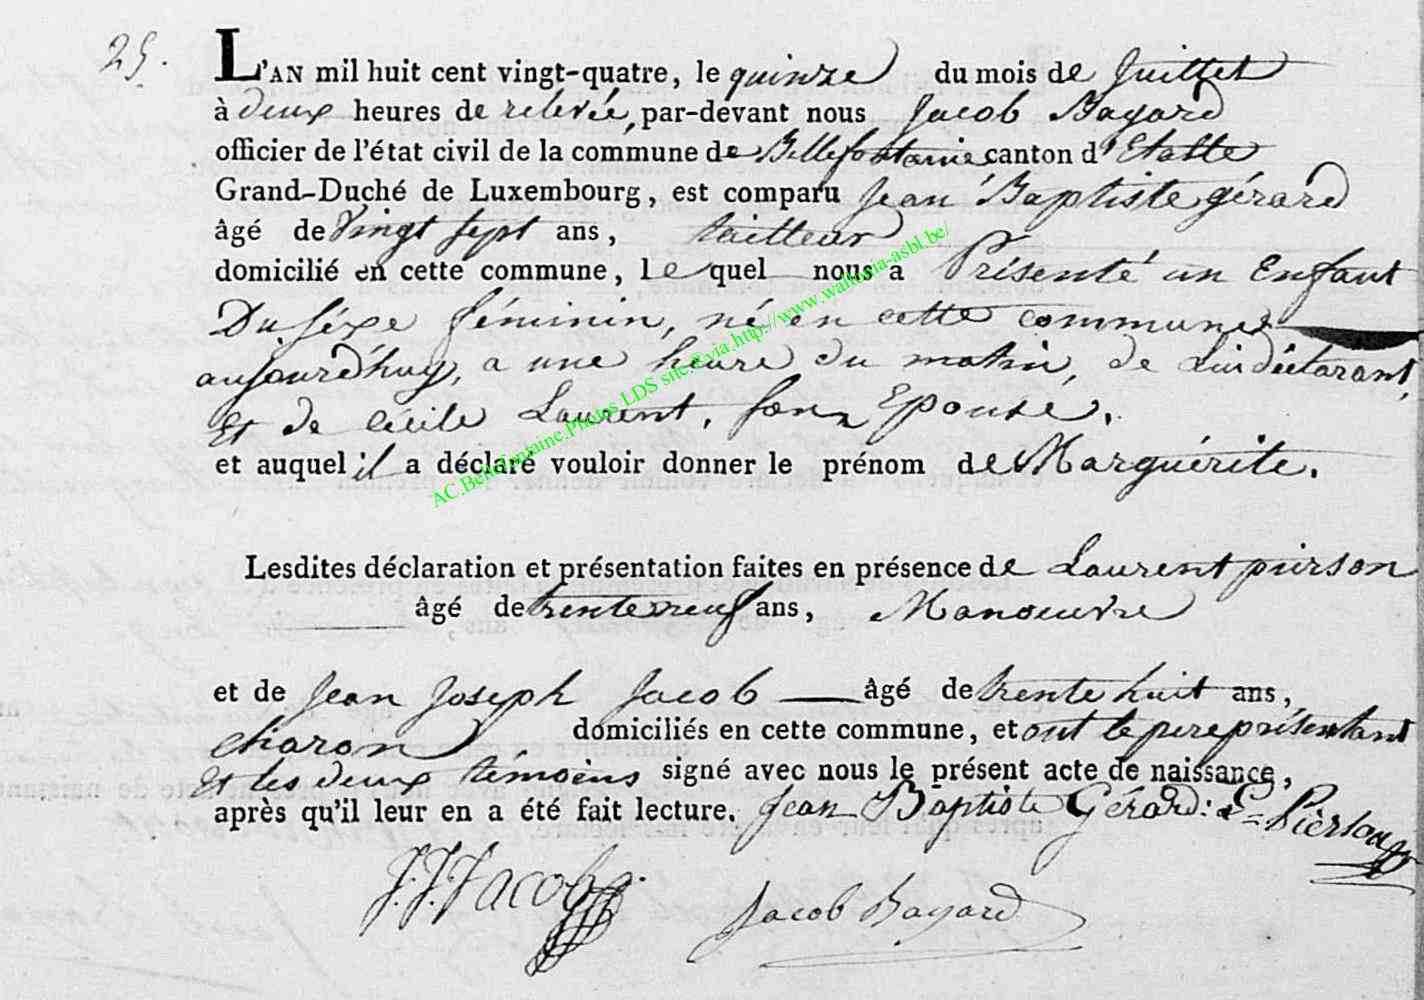 25.
L'AN mil huit cent vingt-quatre, le quinze du mois de Juillet
à deux heures de relevée, par-devant nous Jacob Bayard
officier de l'état civil de la commune de Bellefontaine canton d'Etalle
Grand-Duché de Luxembourg, est comparu Jean Baptiste gérard
âgé de Vingt sept ans, tailleur
domicilié en cette commune, lequel nous a Présenté un Enfant
Du séxe féminin, né en cette commune
aujourd'huy, a une heure du matin, de Lui déclarant,
Et de Cécile Laurent, son Epouse.
et auquel il a déclaré vouloir donner le prénom de Marguérite.
Lesdites déclaration et présentation faites en présence de Laurent pierson
âgé de trente neuf ans, Manoeuvre
et de Jean Joseph Jacob âgé de trente huit ans,
charon domiciliés en cette commune, et ont le pere présentant
Et les deux témoins signé avec nous le présent acte de naissance,
après qu'il leur en a été fait lecture. Jean Baptiste Gérard. L= Pierson
J.J. Jacob Jacob Bayard
AC.Bellefontaine.Photos LDS site @via.http://www.wallonia-asbl.be/